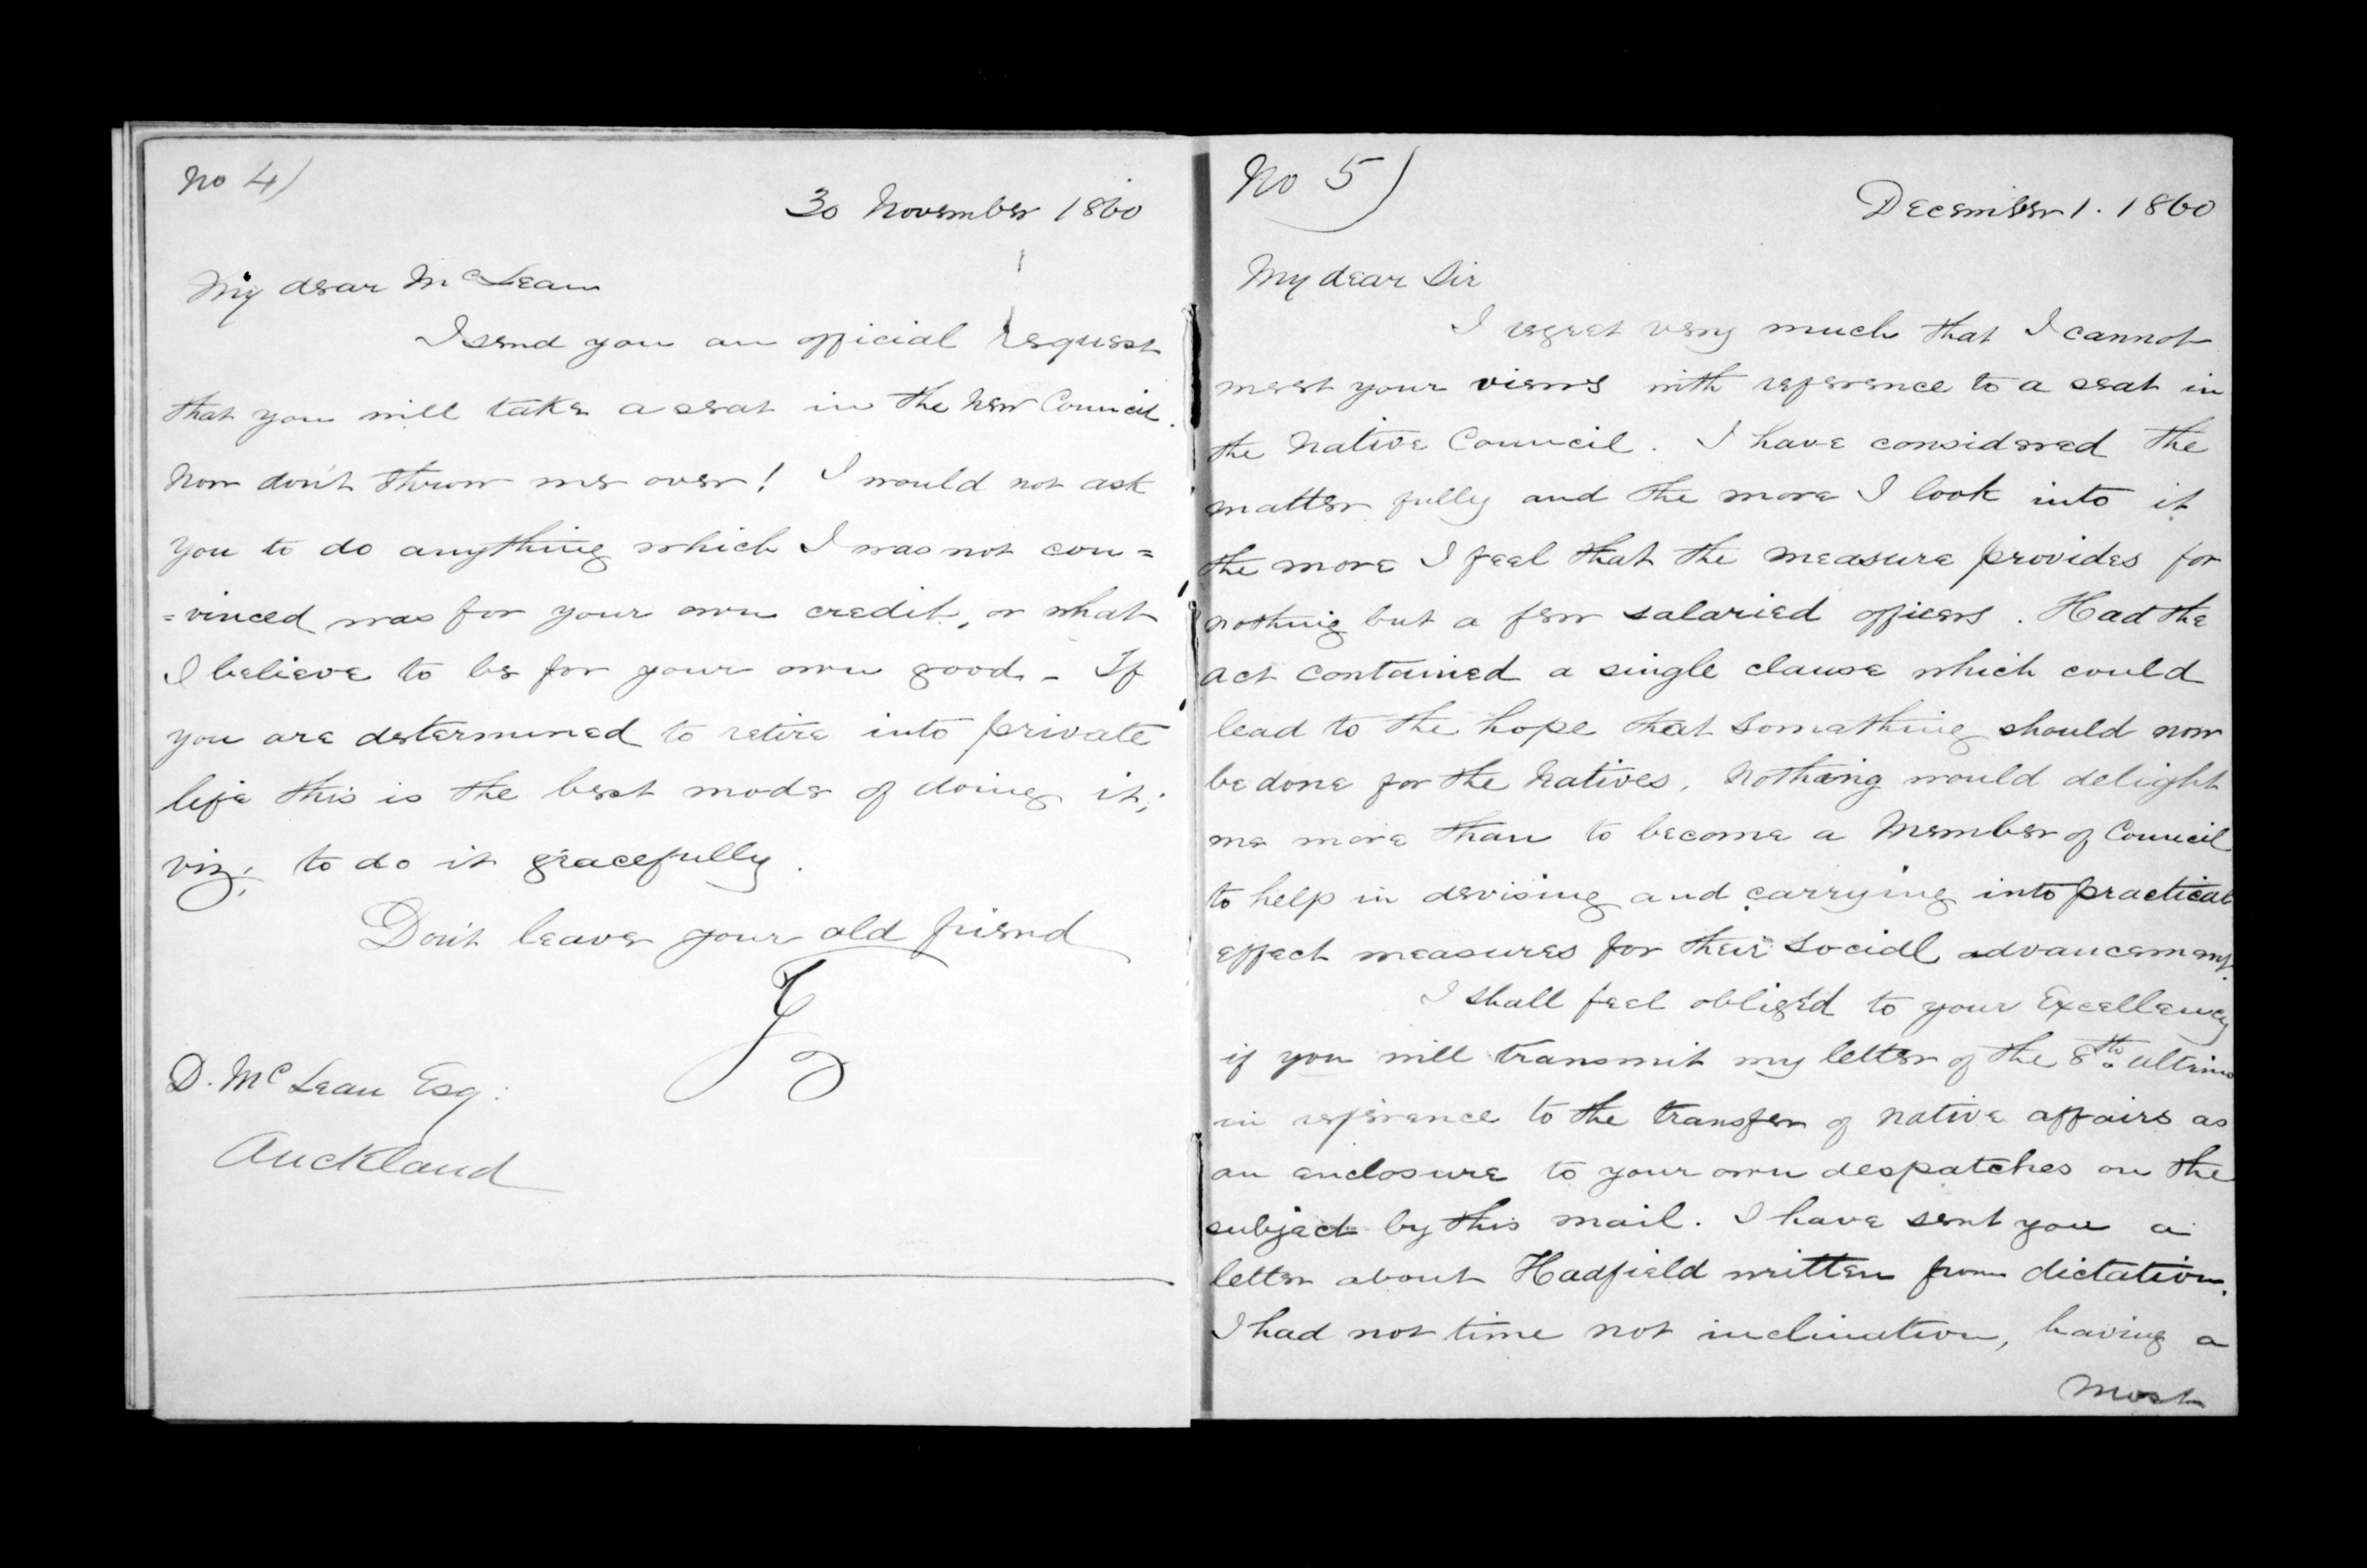 No 4)
30 November 1860
My dear McLean
I send you an official request
that you will take a seat in the New Council.
Now don't throw me over! I would not ask
you to do anything which I was not con=
=vinced was for your own credit, or what
I believe to be for your own good - If
you are determined to retire into private
life this is the best mode of doing it;
viz; to do it gracefully.
Don't leave your old friend
D. McLean Esq:
Auckland
No 5)
December 1. 1860
My dear Sir
I regret very much that I cannot
meet your views with reference to a seat in
the Native Council. I have considered the
matter fully and the more I look into it
the more I feel that the measure provides for
nothing but a few salaried officers. Had the
act contained a single clause which could
lead to the hope that something should now
be done for the Natives, nothing would delight
me more than to become a Member of Council
to help in devising and carrying into practical
effect measures for their social advancement.
I shall feel obliged to your Excellency
if you will transmit my letter of the 8th ultimo
in reference to the transfer of native affairs as
an enclosure to your own despatches on the
subject by this mail. I have sent you a
letter about Hadfield written from dictation.
I had not time not inclination, having a
most